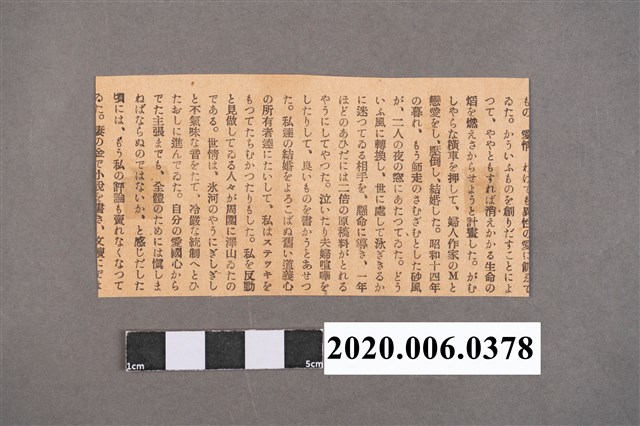 もの、愛情、わけても異性の愛に飢ゑて
ゐた。かういふものを創りだすことによ
つて、ややともすれば消えかかる生命の
焰を燃えさからせようと計畫した。がむ
しやらな橫車を押して、婦人作家のMと
戀愛をし、壓倒し、結婚した。昭和十四年
の暮れ、もう師走のさむざむとした砂風
が、二人の夜の窓にあたつてゐた。どう
いふ風に轉換し、世に處して泳ぎきるか
に迷つてゐる相手を、懸命に導き、一年
ほどのあひだには二倍の原稿料がとれる
やうにしてやつた。泣いたり夫婦喧嘩を
したりして、良いものを書かうとあせつ
た。私達の結婚をよろこばぬ舊い道義心
の所有者達にたいして、私はステツキを
もつてたちむかつたりもした。私を反動
と見做してゐる人々が周圍に澤山ゐたの
である。世情は、氷河のやうにぎしぎし
と不氣味な音をたて、冷嚴な統制へとひ
たおしに進んでゐた。自分の愛國心から
でた主張までも、全體のためには愼しま
ねばならぬのではないか、と感じだした
頃には、もう私の評論も賣れなくなつて
ゐた。妻の金で小說を書き、文
1cm
5cm
2020.006.0378